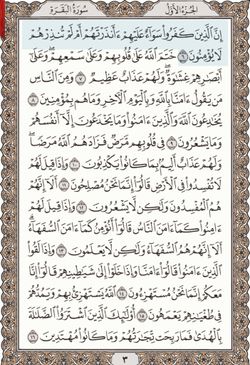 الجزء الأول سورة البقرة
إن الذين كفروا سواء عليهم ءأنذرتهم أم لم تنذرهم
لا يؤمنون ٦ ختم الله على قلوبهم وعلى سمعهم وعلى
أبصرهم غشوة ولهم عذاب عظيم ٧ ومن الناس
من يقول ءامنا بالله وباليوم الأخر وما هم بمؤمنين ٨
يخدعون الله والذين ءامنوا وما يخدعون إلا أنفسهم
وما يشعرون ٩ في قلوبهم مرض فزادهم الله مرضا
ولهم عذاب أليم بما كانوا يكذبون ١٠ وإذا قيل لهم
لا تفسدوا في الأرض قالوا إنما نحن مصلحون ١١ ألا إنهم
هم المفسدون ولكن لا يشعرون ١٢ وإذا قيل لهم
ءامنوا كما ءامن الناس قالوا أنؤمن كما ءامن السفهاء
ألا إنهم هم السفهاء ولكن لا يعلمون ١٣ وإذا لقوا
الذين ءامنوا قالوا ءامنا وإذا خلوا إلى شيطينهم قالوا إنا
معكم إنما نحن مستهزءون ١٤ الله يستهزئ بهم ويمدهم
في طغينهم يعمهون ١٥ أولئك الذين اشتروا الضللة
بالهدى فما ربحت تجرتهم وما كانوا مهتدين ١٦
٣